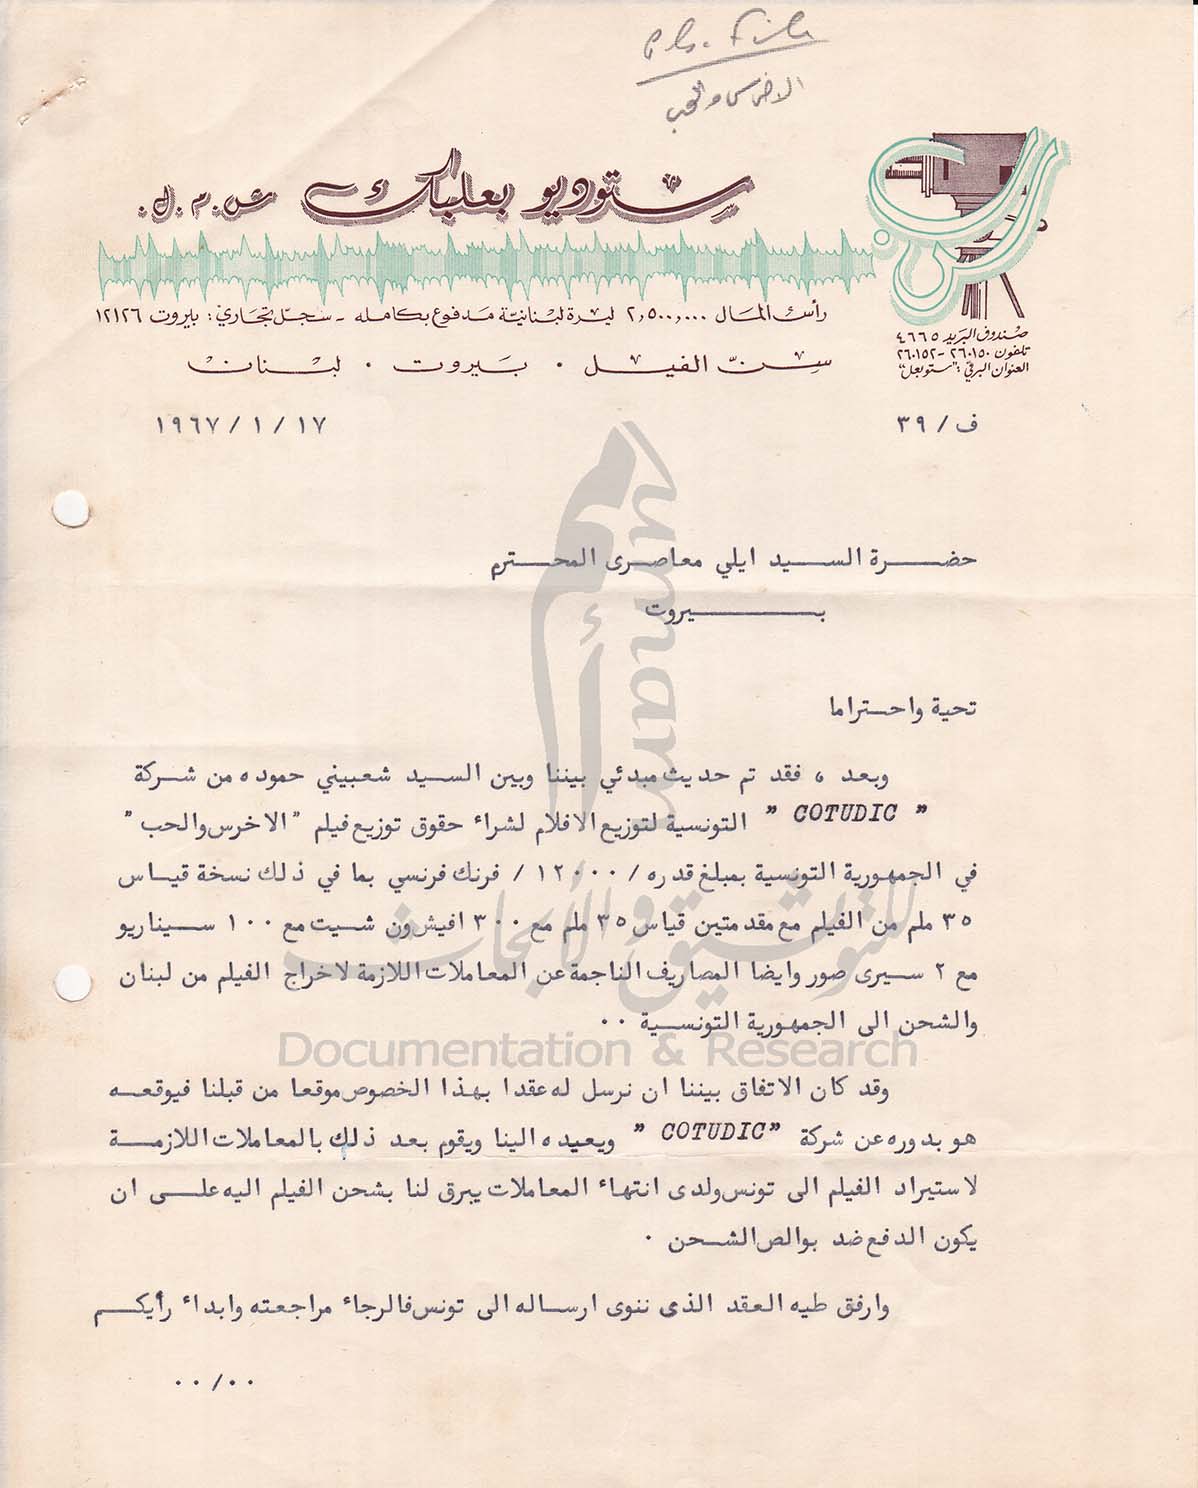 Pls. File
الاخرس والحب
ستوديو بعلبك ش.م.ل.
رأس المال ٢,٥٠٠,٠٠٠ ليرة لبنانيّة مدفوع بكامله - سجل تجاري: بيروت ١٢١٢٦
سنّ الفيل . بيروت . لبنان
صندوق البريد ٤٦٦٥
تلفون ٢٦٠١٥٠ - ٢٦٠١٥٢
العنوان البرقي: "ستوبعل"
ف / ٣٩
١٩٦٧ / ١ / ١٧
حضرة السيد ايلي معاصرى المحترم
بيروت
تحية واحتراما
وبعد ، فقد تم حديث مبدئي بيننا وبين السيد شعبيني حموده من شركة
" COTUDIC " التونسية لتوزيع الافلام لشراء حقوق توزيع فيلم "الاخرس والحب"
في الجمهورية التونسية بمبلغ قدره / ١٢٠٠٠ / فرنك فرنسي بما في ذلك نسخة قياس
٣٥ ملم من الفيلم مع مقدمتين قياس ٣٥ ملم مع ٣٠٠ افيش ون شيت مع ١٠٠ سيناريو
مع ٢ سيرى صور وايضا المصاريف الناجمة عن المعاملات اللازمة لاخراج الفيلم من لبنان
والشحن الى الجمهورية التونسية ٠٠
وقد كان الاتفاق بيننا ان نرسل له عقدا بهذا الخصوص موقعا من قبلنا فيوقعه
هو بدوره عن شركة "COTUDIC" ويعيده الينا ويقوم بعد ذلك بالمعاملات اللازمة
لاستيراد الفيلم الى تونس ولدى انتهاء المعاملات يبرق لنا بشحن الفيلم اليه على ان
يكون الدفع ضد بوالص الشحن ٠
وارفق طيه العقد الذى ننوى ارساله الى تونس فالرجاء مراجعته وابداء رأيكم
٠٠/٠٠
أمم
umam
للتوثيق والأبحاث
Documentation & Research